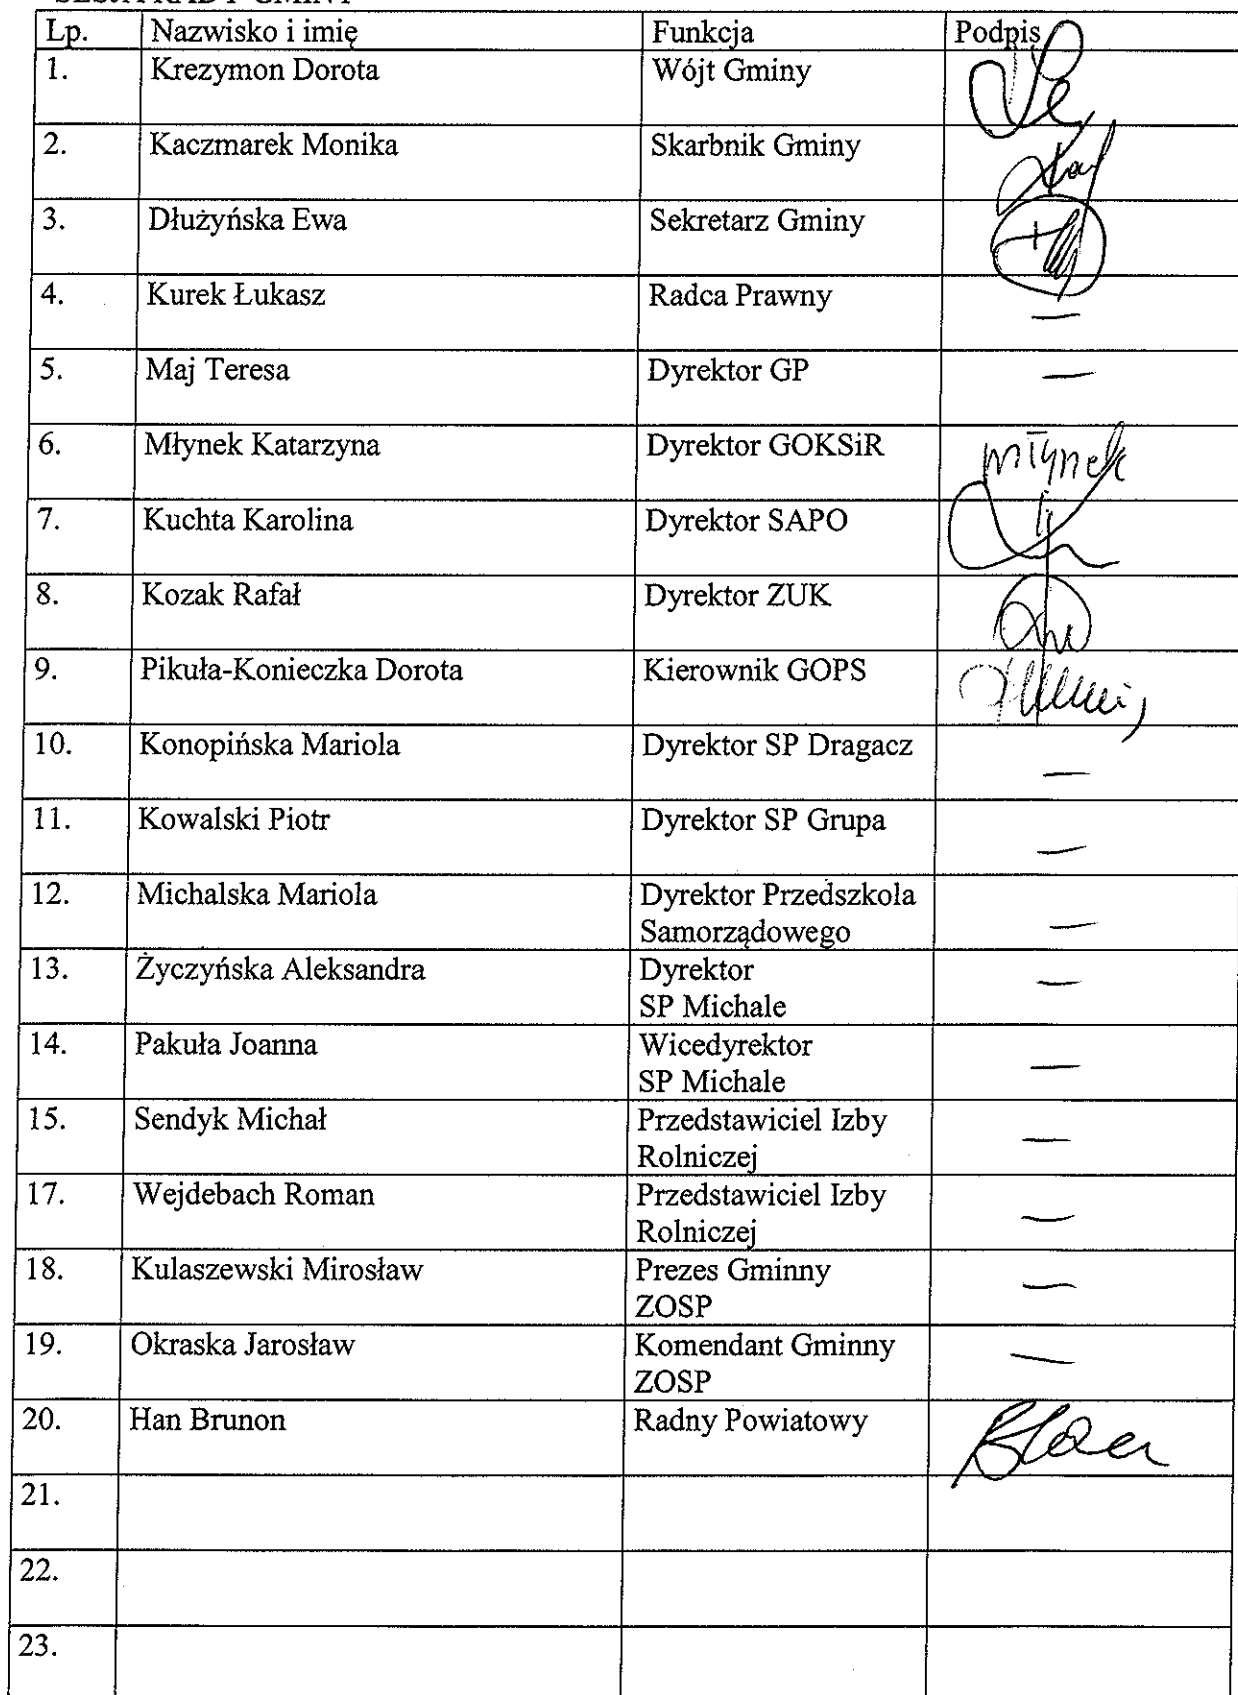 SESJA RADY GMINY
Lp. Nazwisko i imię Funkcja Podpis
1. Krezymon Dorota Wójt Gminy
2. Kaczmarek Monika Skarbnik Gminy
3. Dłużyńska Ewa Sekretarz Gminy
4. Kurek Łukasz Radca Prawny —
5. Maj Teresa Dyrektor GP —
6. Młynek Katarzyna Dyrektor GOKSiR Młynek
7. Kuchta Karolina Dyrektor SAPO
8. Kozak Rafał Dyrektor ZUK
9. Pikuła-Konieczka Dorota Kierownik GOPS
10. Konopińska Mariola Dyrektor SP Dragacz —
11. Kowalski Piotr Dyrektor SP Grupa —
12. Michalska Mariola Dyrektor Przedszkola
Samorządowego —
13. Życzyńska Aleksandra Dyrektor
SP Michale —
14. Pakuła Joanna Wicedyrektor
SP Michale —
15. Sendyk Michał Przedstawiciel Izby
Rolniczej —
17. Wejdebach Roman Przedstawiciel Izby
Rolniczej —
18. Kulaszewski Mirosław Prezes Gminny
ZOSP —
19. Okraska Jarosław Komendant Gminny
ZOSP —
20. Han Brunon Radny Powiatowy
21.
22.
23.